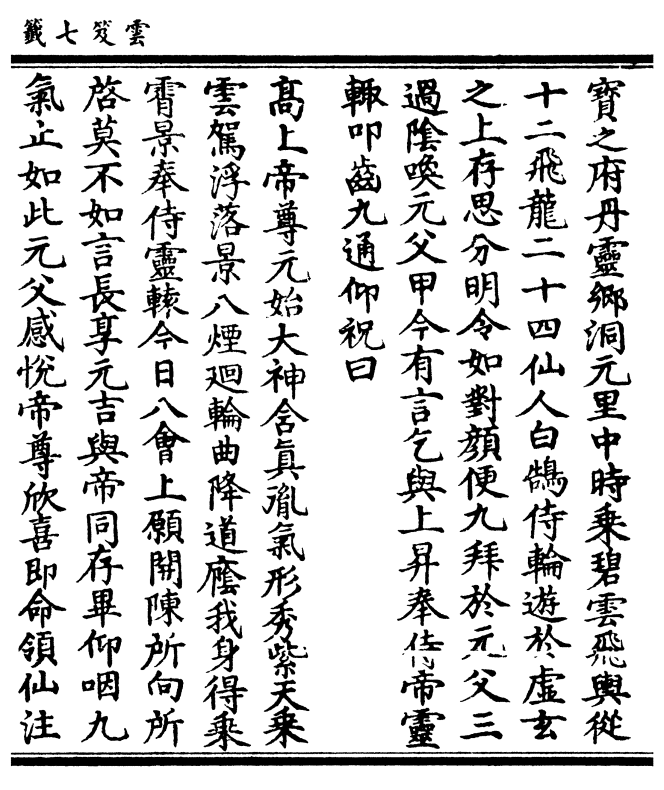 雲笈七籤
寶之府丹靈鄉洞元里中時乗碧雲飛輿從
十二飛龍二十四仙人白鵠侍輪遊於虛玄
之上存思分明令如對顔便九拜於元父三
過陰喚元父甲今有言乞與上昇奉侍帝靈
輙叩齒九通仰祝曰
髙上帝尊元始大神含真胤氣形秀紫天乗
雲駕浮落景八煙廻輪曲降道廕我身得乗
霄景奉侍靈轅今日八會上願開陳所向所
啓莫不如言長享元吉與帝同存畢仰咽九
氣止如此元父感悅帝尊欣喜即命領仙注